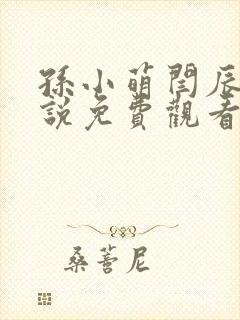 孫小萌閆辰
說免費觀看
桑蕾尼